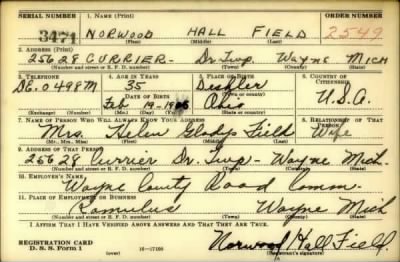 SERIAL NUMBER 1. NAME (Print) ORDER NUMBER
3471 NORWOOD HALL FIELD 2549
(First) (Middle) (Last)
2. ADDRESS (Print)
25628 CURRIER- Dr. Twp. WAYNE MICH
(Number and street or R. F. D. number) (Town) (County) (State)
3. TELEPHONE 4. AGE IN YEARS 5. PLACE OF BIRTH 6. COUNTRY OF CITIZENSHIP
DE. 0498M 35 Deshler U.S.A.
DATE OF BIRTH (Town or county)
Feb 19-1905 Ohio
(Exchange) (Number) (Mo.) (Day) (Yr.) (State or country)
7. NAME OF PERSON WHO WILL ALWAYS KNOW YOUR ADDRESS 8. RELATIONSHIP OF THAT PERSON
Mrs. Helen Gladys Field Wife
(Mr., Mrs., Miss) (First) (Middle) (Last)
9. ADDRESS OF THAT PERSON
25628 Currier Dr. Twp- Wayne Mich.
(Number and street or R. F. D. number) (Town) (County) (State)
10. EMPLOYER'S NAME
Wayne County Road Comm.
11. PLACE OF EMPLOYMENT OR BUSINESS
Romulus Wayne Mich
(Number and street or R. F. D. number) (Town) (County) (State)
I AFFIRM THAT I HAVE VERIFIED ABOVE ANSWERS AND THAT THEY ARE TRUE.
REGISTRATION CARD
D. S. S. Form 1 (over) 16-17105 Norwood Hall Field.
(Registrant's signature)